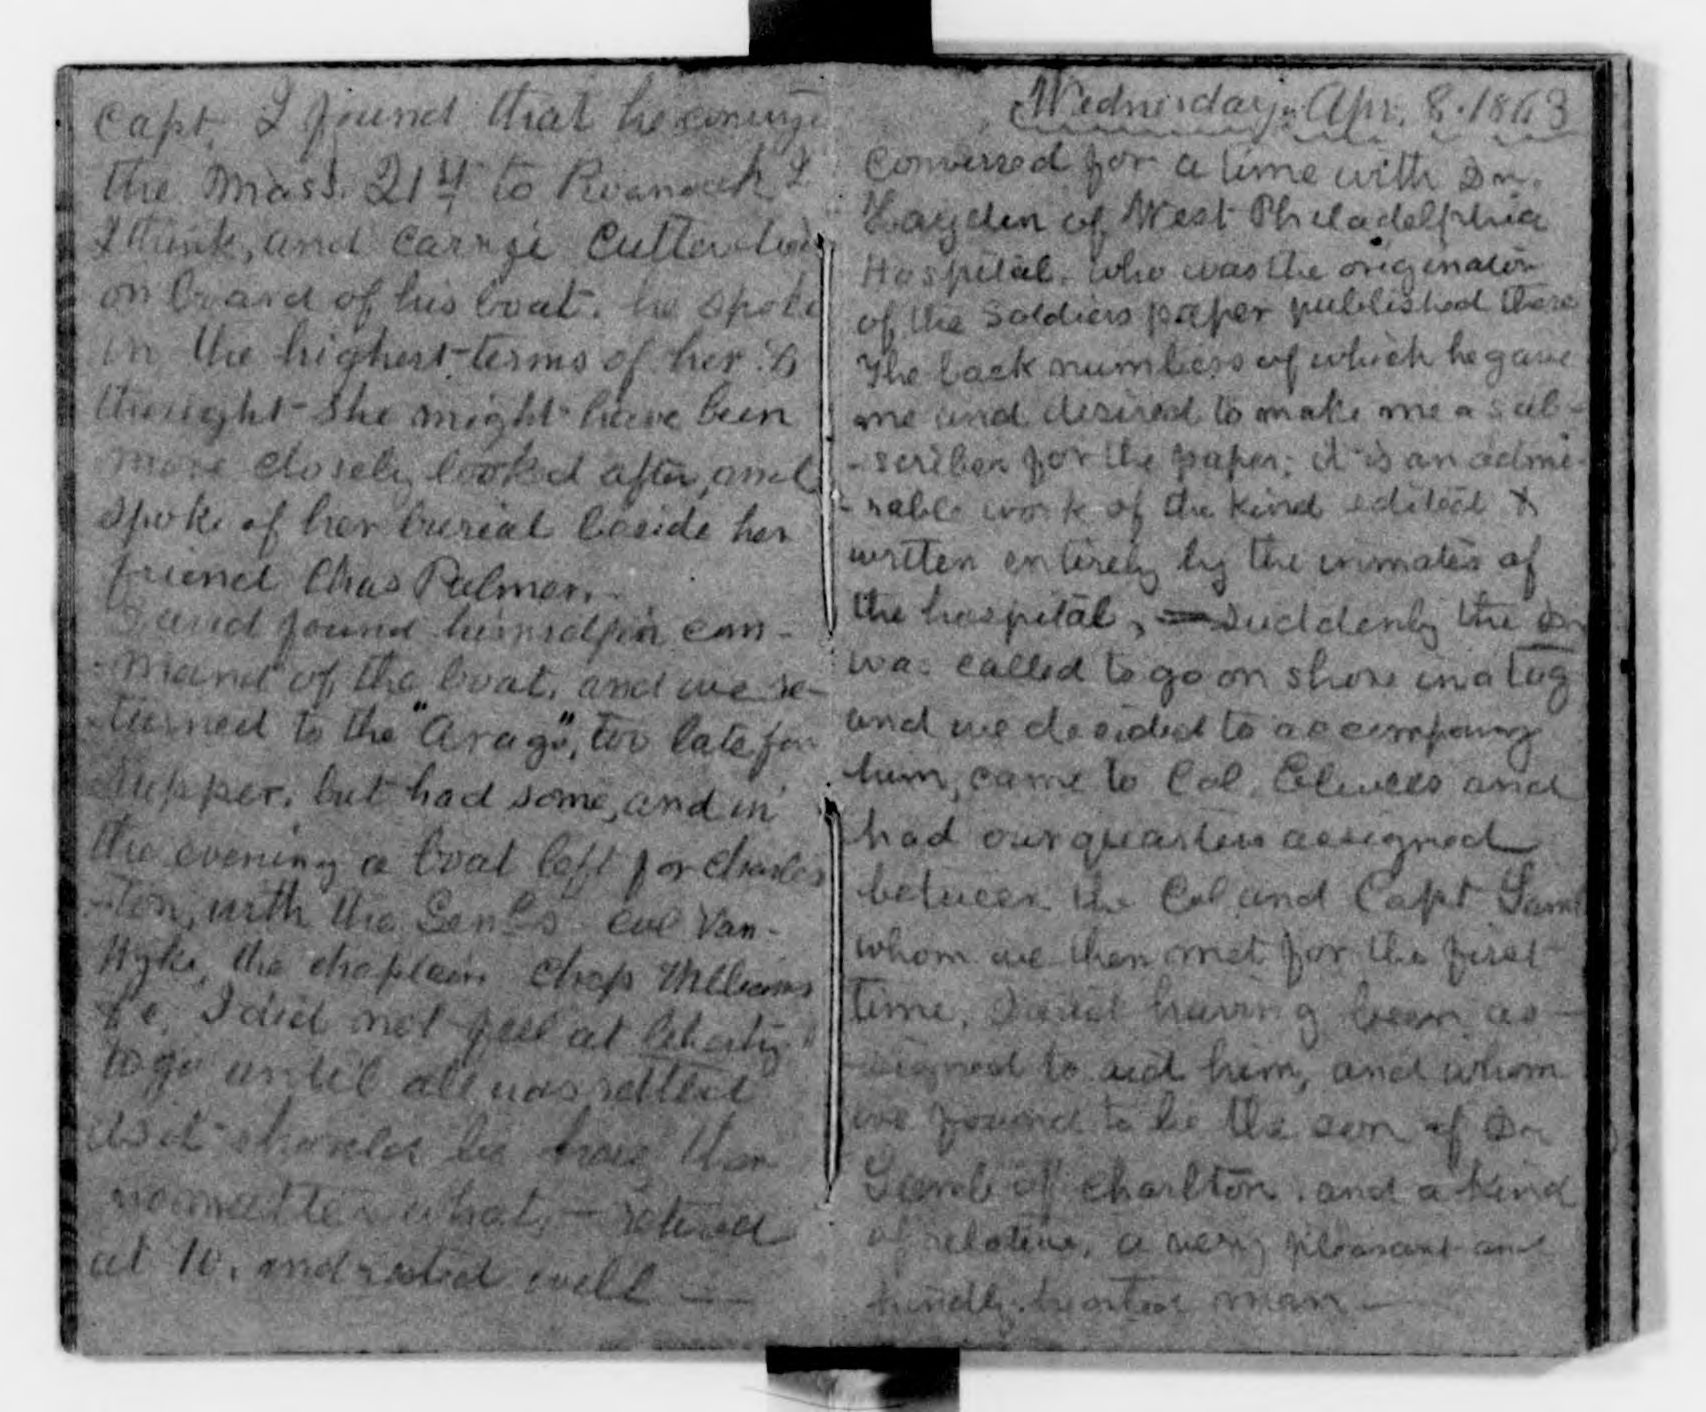 Capt. I found that he conveyed
the Mass. 21st to Roanoak I
I think, and Carrie Cutter died
on board of his boat. he spoke
in the highest terms of her. &
thought she might have been
more closely looked after, and
spoke of her burial beside her
friend Chas Palmer.
David found himself in com-
-mand of the boat, and we re-
-turned to the "Arago", too late for
supper, but had some, and in
the evening a boat left for Charles
-ton, with the Genls Col Van-
Wyke, the chaplain Chap Williams
&c, I did not feel at liberty
to go until all was settled
as it should be
no matter what, - retired
at 10, and rested well -
Wednesday, Apr. 8. 1863
Conversed for a time with Dr.
Hayden of West Philadelphia
Hospital, who was the originator
of the Soldiers paper published there
The back numbers of which he gave
me and desired to make me a sub-
-scriber for the paper; it is an admi-
-rable work of the kind edited &
written entirely by the inmates of
the hospital, - Suddenly the Dr
was called to go on shore in a tug
and we decided to accompany
him, came to Col. Elwells and
had our quarters assigned
between the Col and Capt Lamb
whom we then met for the first
time, David having been as-
-signed to aid him, and whom
we found to be the son of Dr
Lamb of Charlton. and a kind
of relative, a very pleasant and
kindly hearted man -